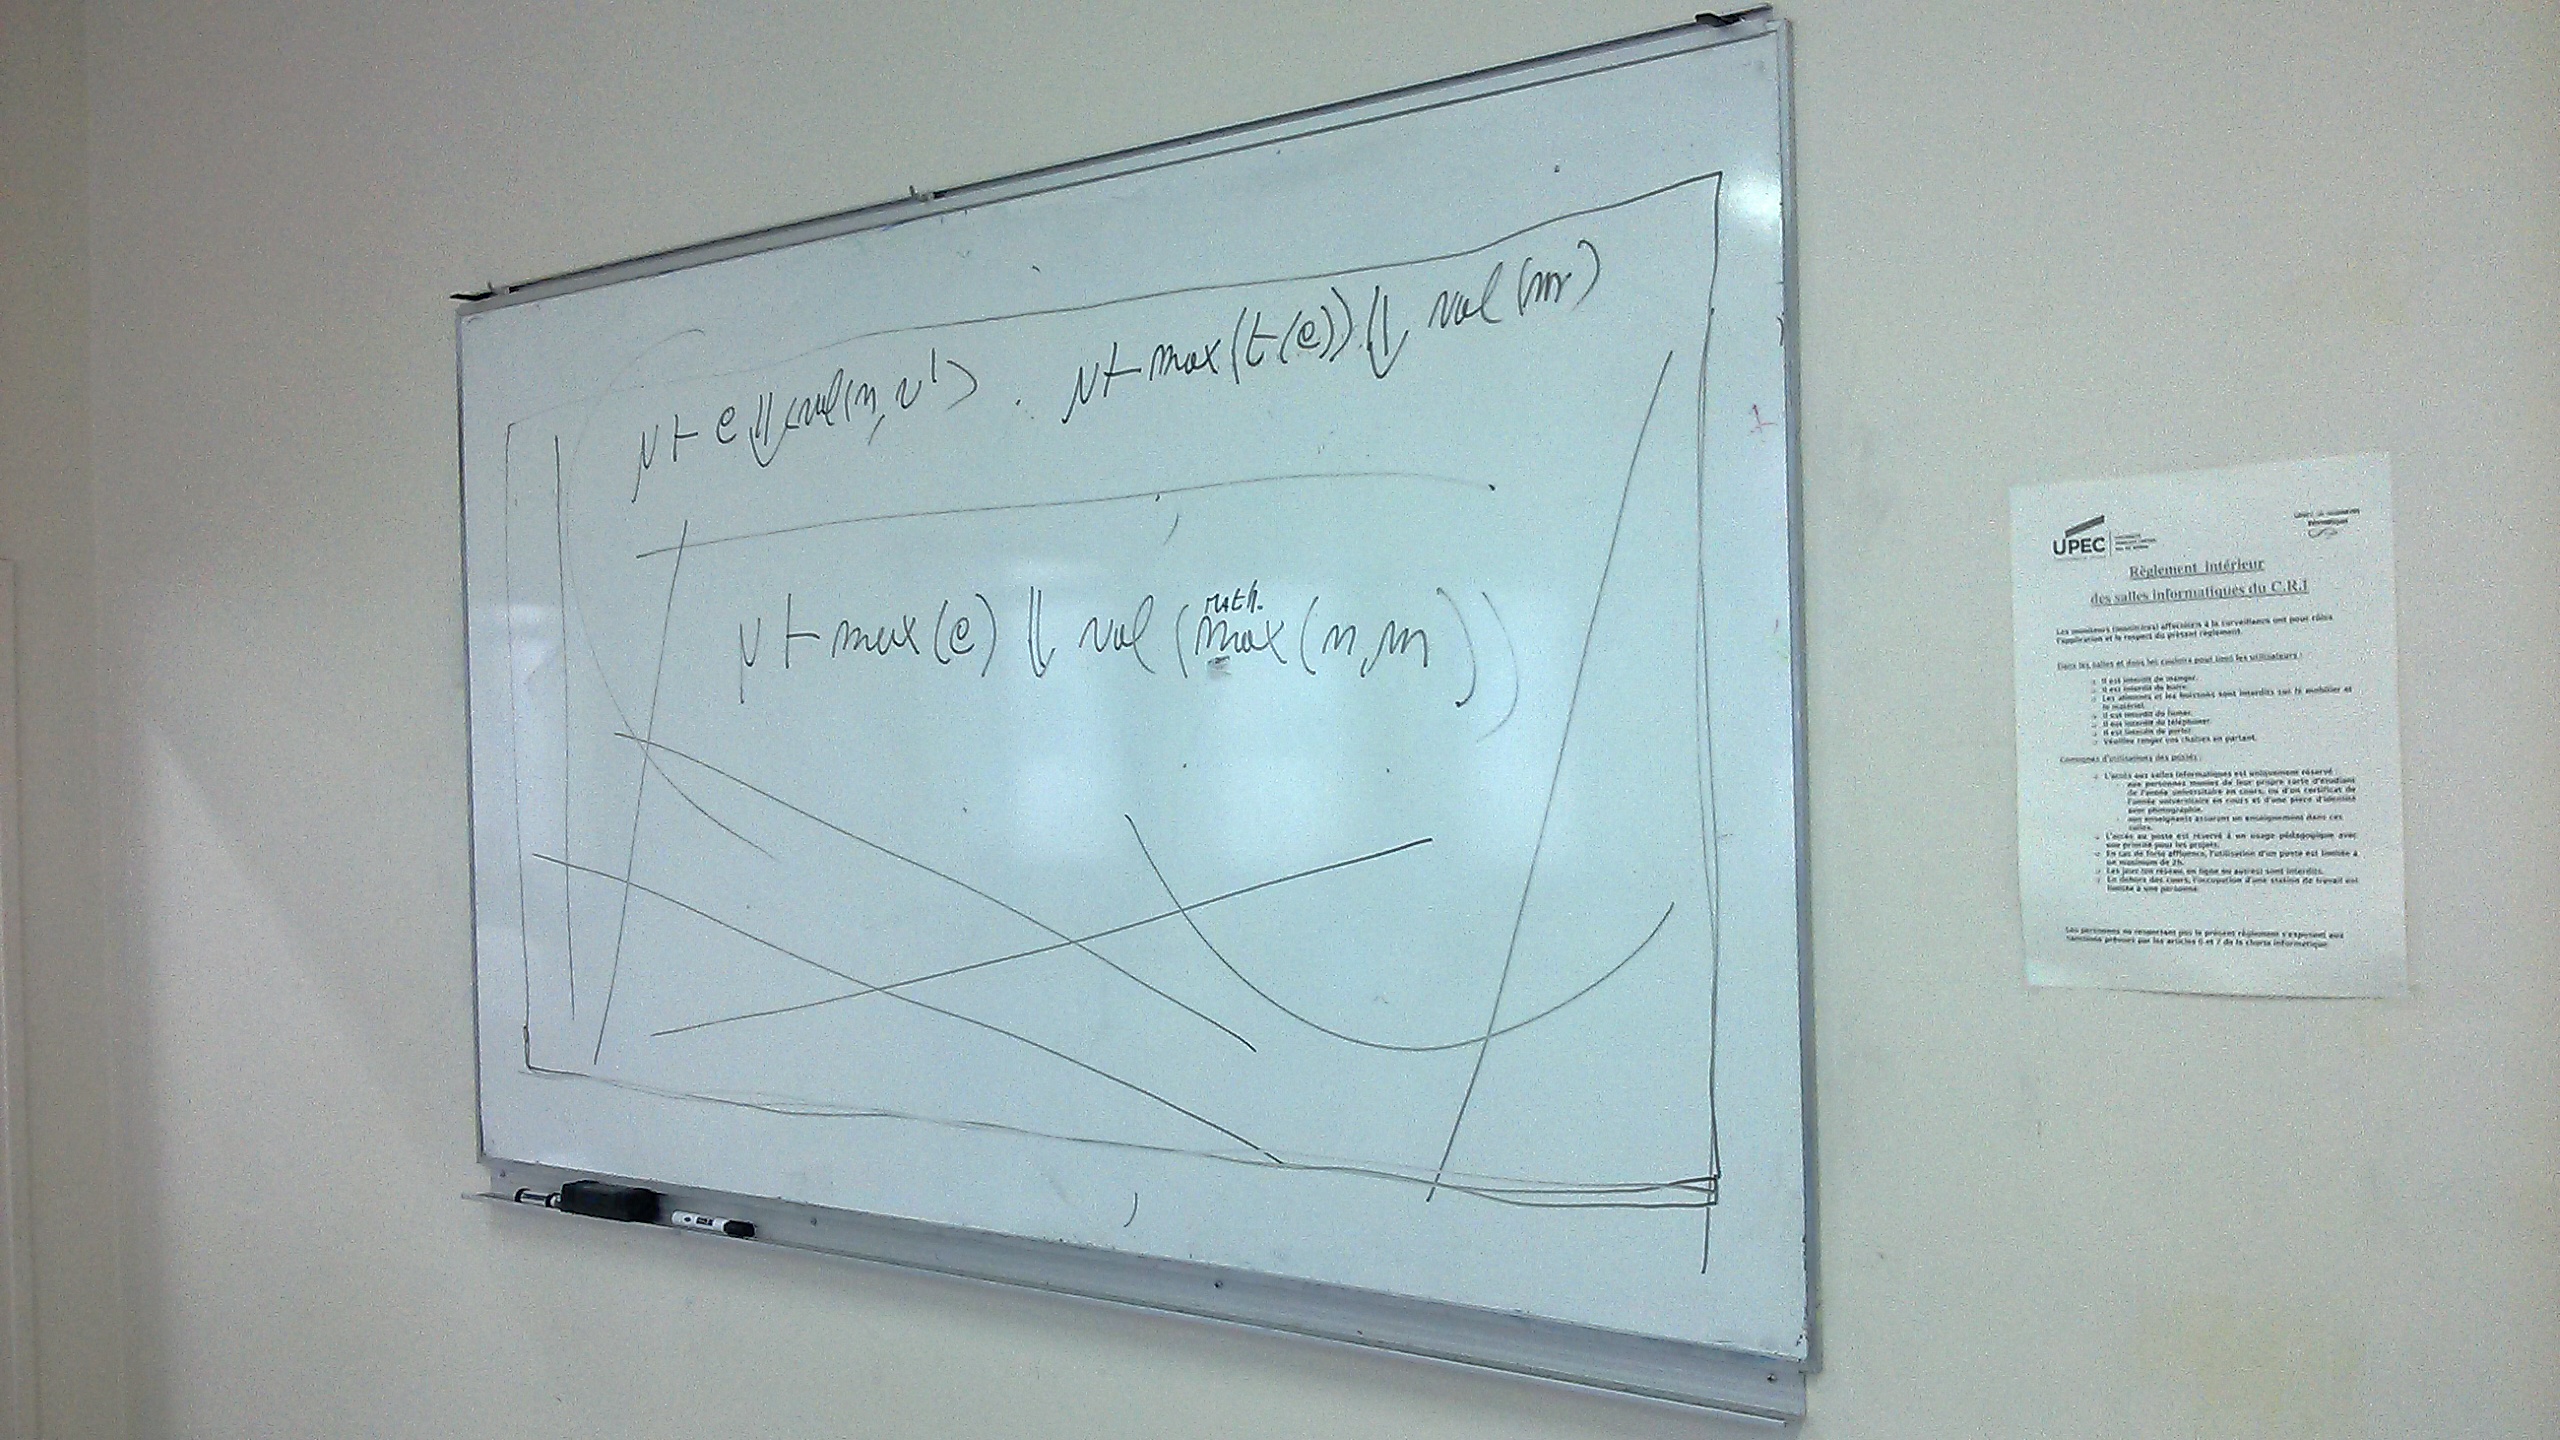 μ ⊢ e ⇓ val(n, v') . μ ⊢ max(t(e)) ⇓ val(m)
μ ⊢ max(e) ⇓ val(max(n, m))
math.
UPEC
Règlement intérieur
des salles informatiques du C.R.I
Les moniteurs (monitrices) affectés(es) à la surveillance ont pour rôles
l'application et le respect du présent règlement.
Dans les salles et dans les couloirs pour tous les utilisateurs :
Il est interdit de manger.
Il est interdit de boire.
Les aliments et les boissons sont interdits sur le mobilier et
le matériel.
Il est interdit de fumer.
Il est interdit de téléphoner.
Il est interdit de parler.
Veuillez ranger vos chaises en partant.
Consignes d'utilisations des postes :
L'accès aux salles informatiques est uniquement réservé :
aux personnes munies de leur propre carte d'étudiant
de l'année universitaire en cours, ou d'un certificat de
l'année universitaire en cours et d'une pièce d'identité
avec photographie.
aux enseignants assurant un enseignement dans ces
salles.
L'accès au poste est réservé à un usage pédagogique avec
une priorité pour les projets.
En cas de forte affluence, l'utilisation d'un poste est limitée à
un maximum de 2h.
Les jeux (en réseau, en ligne ou autres) sont interdits.
En dehors des cours, l'occupation d'une station de travail est
limitée à une personne.
Les personnes ne respectant pas le présent règlement s'exposent aux
sanctions prévues par les articles 6 et 7 de la charte informatique